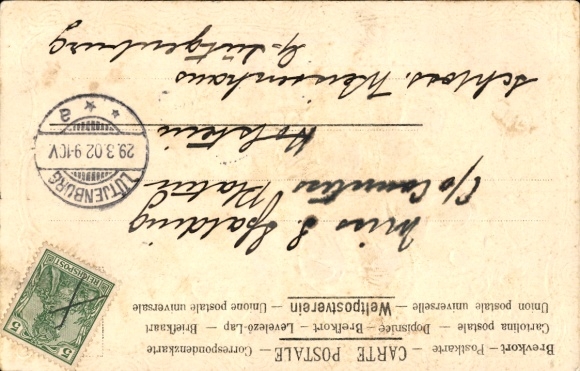 CARTE POSTALE
Brevkort — Postkarte — Correspondenzkarte
Cartolina postale — Dopisnice — Brefkort — Levelező-Lap — Briefkaart
Union postale universelle — Weltpostverein — Unione postale universale
REICHSPOST
5 5
LÜTJENBURG
29.3.02 9-10V.
* * a
Miss S. Spalding
c/o Countess Platen
Holstein
Schloss. Weissenhaus
b. Lütjenburg